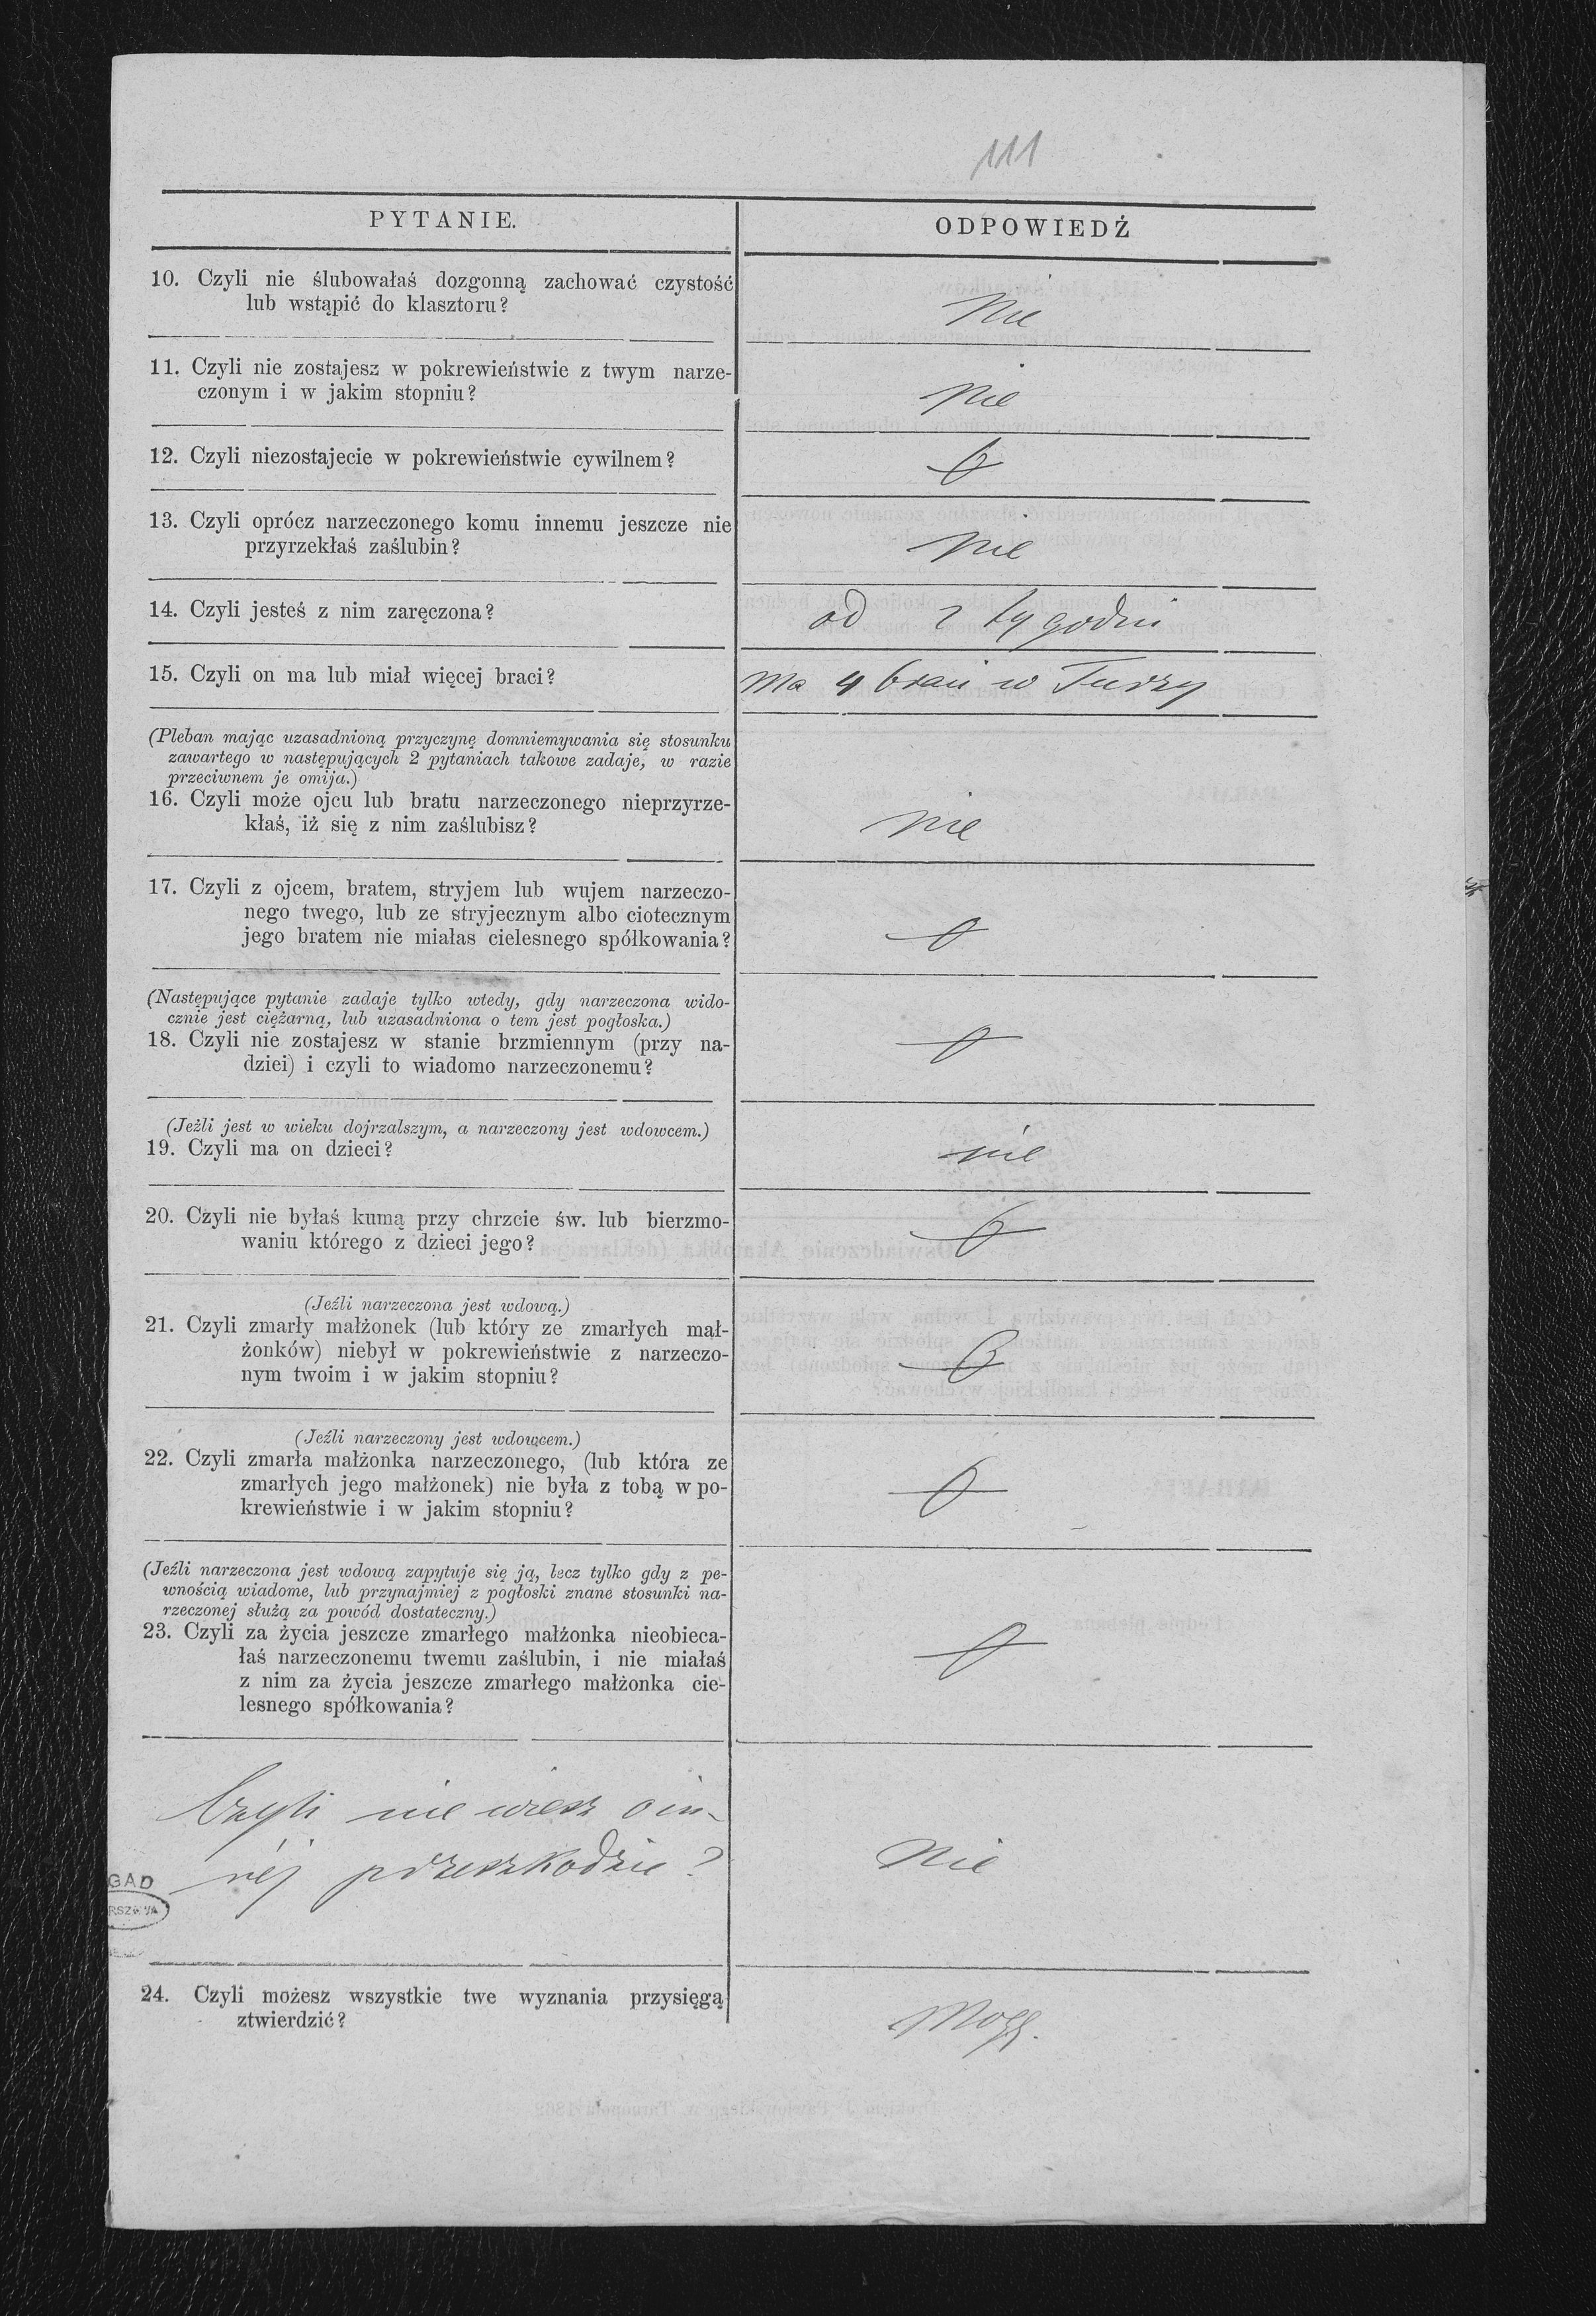 111
PYTANIE.
ODPOWIEDŹ
10. Czyli nie ślubowałaś dozgonną zachować czystość
lub wstąpić do klasztoru?
nie
11. Czyli nie zostajesz w pokrewieństwie z twym narze-
czonym i w jakim stopniu?
nie
12. Czyli niezostajecie w pokrewieństwie cywilnem?
0
13. Czyli oprócz narzeczonego komu innemu jeszcze nie
przyrzekłaś zaślubin?
nie
14. Czyli jesteś z nim zaręczona?
od 2 tygodni
15. Czyli on ma lub miał więcej braci?
ma 4 braci w Turzy
(Pleban mając uzasadnioną przyczynę domniemywania się stosunku
zawartego w następujących 2 pytaniach takowe zadaje, w razie
przeciwnem je omija.)
16. Czyli może ojcu lub bratu narzeczonego nieprzyrze-
kłaś, iż się z nim zaślubisz?
nie
17. Czyli z ojcem, bratem, stryjem lub wujem narzeczo-
nego twego, lub ze stryjecznym albo ciotecznym
jego bratem nie miałas cielesnego spółkowania?
0
(Następujące pytanie zadaje tylko wtedy, gdy narzeczona wido-
cznie jest ciężarną, lub uzasadniona o tem jest pogłoska.)
18. Czyli nie zostajesz w stanie brzmiennym (przy na-
dziei) i czyli to wiadomo narzeczonemu?
0
(Jeżli jest w wieku dojrzalszym, a narzeczony jest wdowcem.)
19. Czyli ma on dzieci?
nie
20. Czyli nie byłaś kumą przy chrzcie św. lub bierzmo-
waniu którego z dzieci jego?
0
(Jeźli narzeczona jest wdową.)
21. Czyli zmarły małżonek (lub który ze zmarłych mał-
żonków) niebył w pokrewieństwie z narzeczo-
nym twoim i w jakim stopniu?
0
(Jeźli narzeczony jest wdowcem.)
22. Czyli zmarła małżonka narzeczonego, (lub która ze
zmarłych jego małżonek) nie była z tobą w po-
krewieństwie i w jakim stopniu?
0
(Jeźli narzeczona jest wdową zapytuje się ją, lecz tylko gdy z pe-
wnością wiadome, lub przynajmiej z pogłoski znane stosunki na-
rzeczonej służą za powód dostateczny.)
23. Czyli za życia jeszcze zmarłego małżonka nieobieca-
łaś narzeczonemu twemu zaślubin, i nie miałaś
z nim za życia jeszcze zmarłego małżonka cie-
lesnego spółkowania?
0
Czyli nie wiesz o in-
nej przeszkodzie?
nie
24. Czyli możesz wszystkie twe wyznania przysięgą
ztwierdzić?
Mogę.